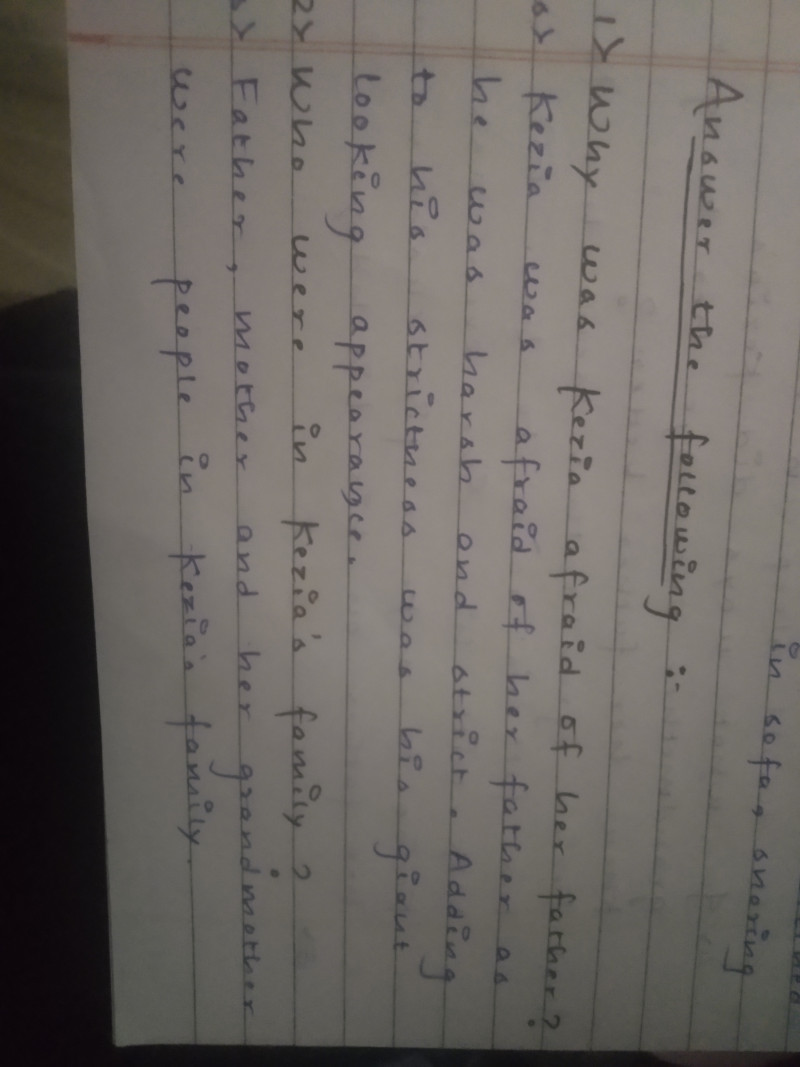 in sofa, snoring
Answer the following :-
1> Why was Kezia afraid of her father?
s> Kezia was afraid of her father as
he was harsh and strict. Adding
to his strictness was his giant
looking appearance.
2> Who were in Kezia's family?
s> Father, mother and her grandmother
were people in Kezia's family.